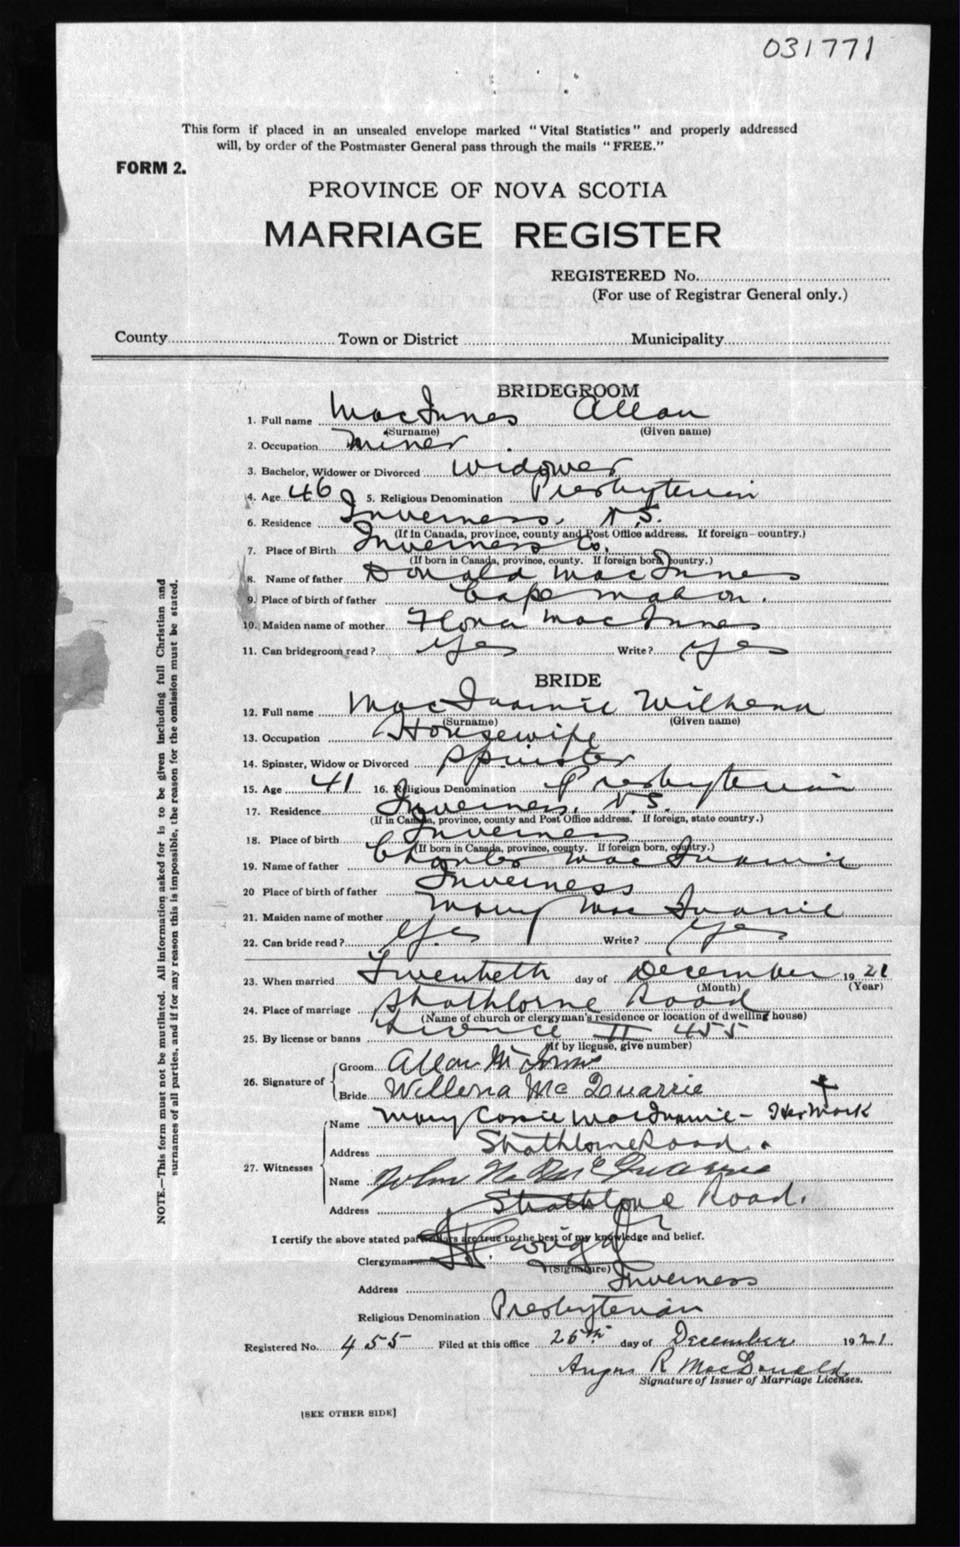 031771
This form if placed in an unsealed envelope marked "Vital Statistics" and properly addressed
will, by order of the Postmaster General pass through the mails "FREE."
FORM 2.
PROVINCE OF NOVA SCOTIA
MARRIAGE REGISTER
REGISTERED No.
(For use of Registrar General only.)
County Town or District Municipality
BRIDEGROOM
1. Full name MacInnes Allan
(Surname) (Given name)
2. Occupation Miner
3. Bachelor, Widower or Divorced Widower
4. Age 46 5. Religious Denomination Presbyterian
6. Residence Inverness, N.S.
(If in Canada, province, county and Post Office address. If foreign—country.)
7. Place of Birth Inverness Co.
(If born in Canada, province, county. If foreign born, country.)
8. Name of father Donald MacInnes
9. Place of birth of father Cape Mabou.
10. Maiden name of mother Flora MacInnes
11. Can bridegroom read? Yes Write? Yes
BRIDE
12. Full name MacQuarrie Wilhena
(Surname) (Given name)
13. Occupation Housewife
14. Spinster, Widow or Divorced Spinster
15. Age 41 16. Religious Denomination Presbyterian
17. Residence Inverness, N.S.
(If in Canada, province, county and Post Office address. If foreign, state country.)
18. Place of birth Inverness
(If born in Canada, province, county. If foreign born, country.)
19. Name of father Charles MacQuarrie
20 Place of birth of father Inverness
21. Maiden name of mother Mary MacQuarrie
22. Can bride read? Yes Write? Yes
23. When married Twentieth day of December 1921
(Month) (Year)
24. Place of marriage Strathlorne Road
(Name of church or clergyman's residence or location of dwelling house)
25. By license or banns Licence 455
(If by license, give number)
26. Signature of Groom Allan
Bride Willena McQuarrie
27. Witnesses Name Mary MacQuarrie - Her Mark
Address Strathlorne Road.
Name John McQuarrie
Address Strathlorne Road.
I certify the above stated particulars are true to the best of my knowledge and belief.
Clergyman
(Signature)
Address Inverness
Religious Denomination Presbyterian
Registered No. 455 Filed at this office 26th day of December 1921
Angus R MacDonald
Signature of Issuer of Marriage Licenses.
[SEE OTHER SIDE]
NOTE.—This form must not be mutilated. All information asked for is to be given including full Christian and
surnames of all parties, and if for any reason this is impossible, the reason for the omission must be stated.